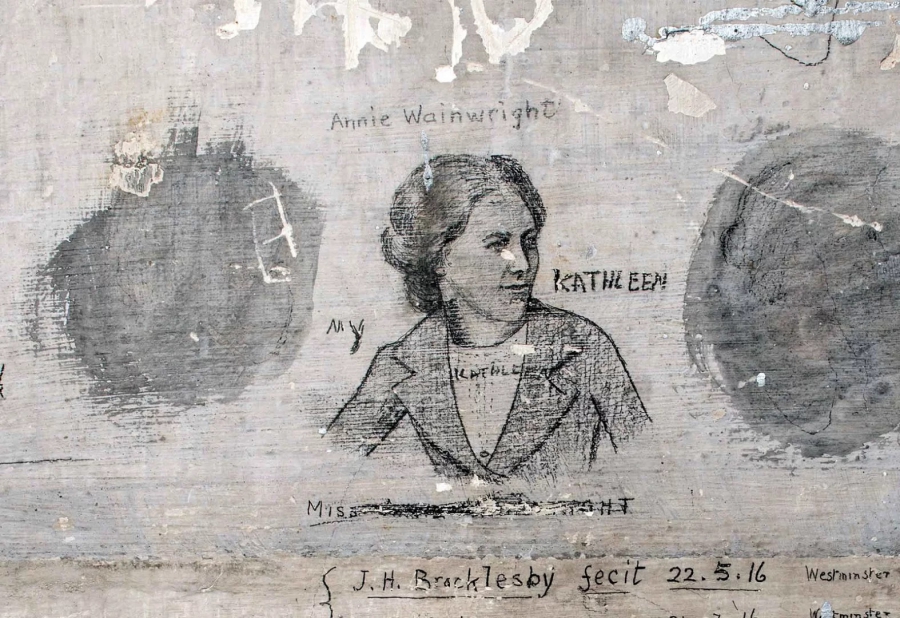 Annie Wainwright
KATHLEEN
MY
KATHLEEN
Miss
J.H. Brocklesby fecit 22.5.16 Westminster
Westminster